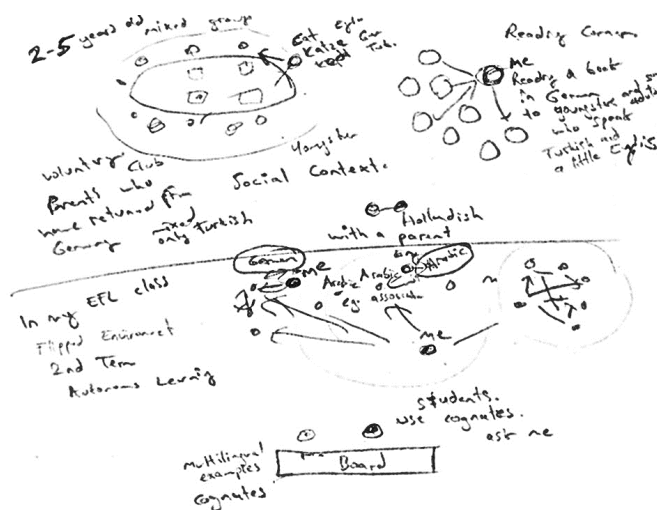 2-5 years old mixed group
Cat
Katze Ger
Kedi Turk.
Reading Corner
me
Reading a book
in German
to youngsters and
who speak
Turkish and
a little English
Voluntary Club
Parents who
have returned from
Germany
mixed
only Turkish
Youngster
Social Context.
Hollndish
with a parent
German
me
Arabic Arabic
eg. associate
Arabic
In my EFL class
Flipped Environment
2nd Term
Autonoms Learnig
me
students.
use cognates.
ask me
Multilingual
examples
cognates
Board